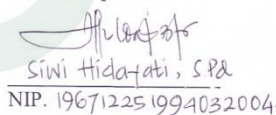 Siwi Hidayati, S.Pd
NIP. 196712251994032004